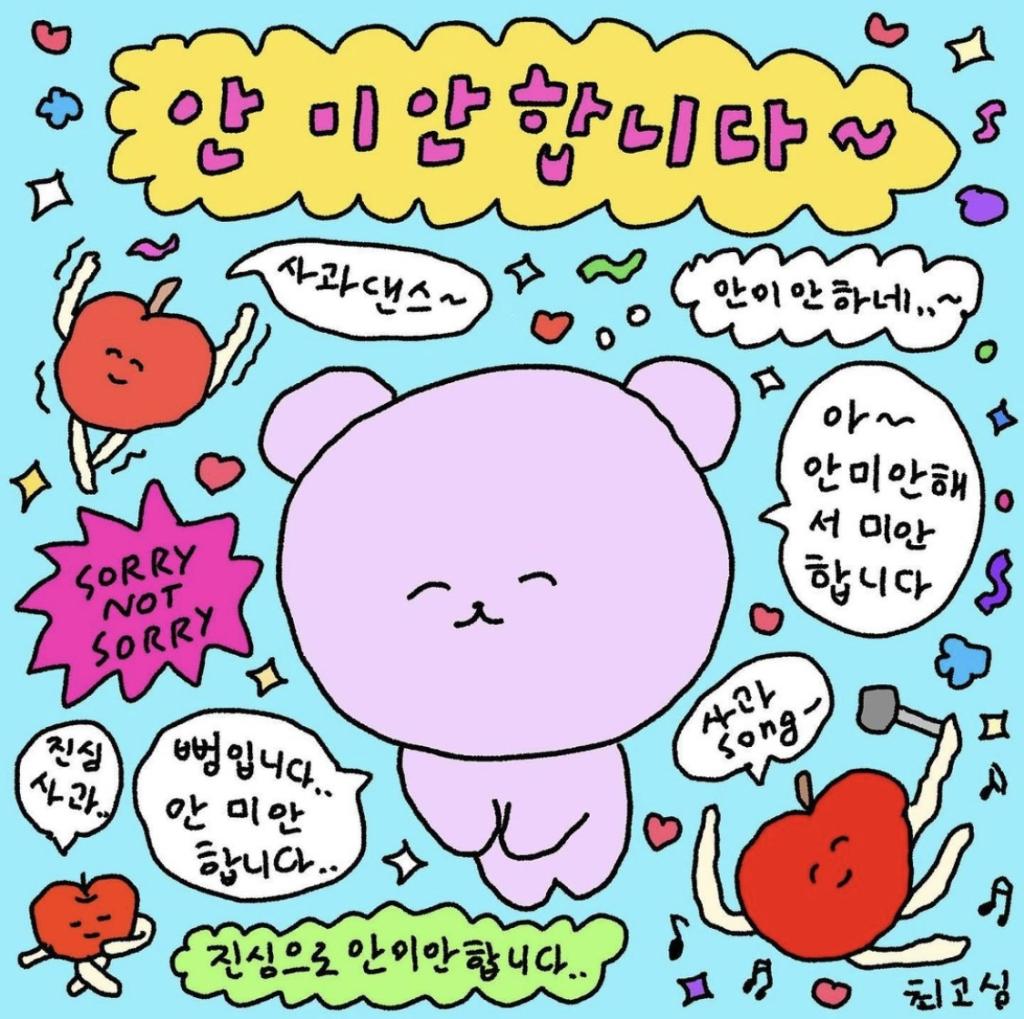 안 미 안 합 니 다 ~
사과댄스~
안미안하네..~
아~
안미안해
서 미안
합니다
SORRY
NOT
SORRY
사과
song~
진심
사과..
뻥입니다..
안 미 안
합니다..
진심으로 안미안합니다..
최고심